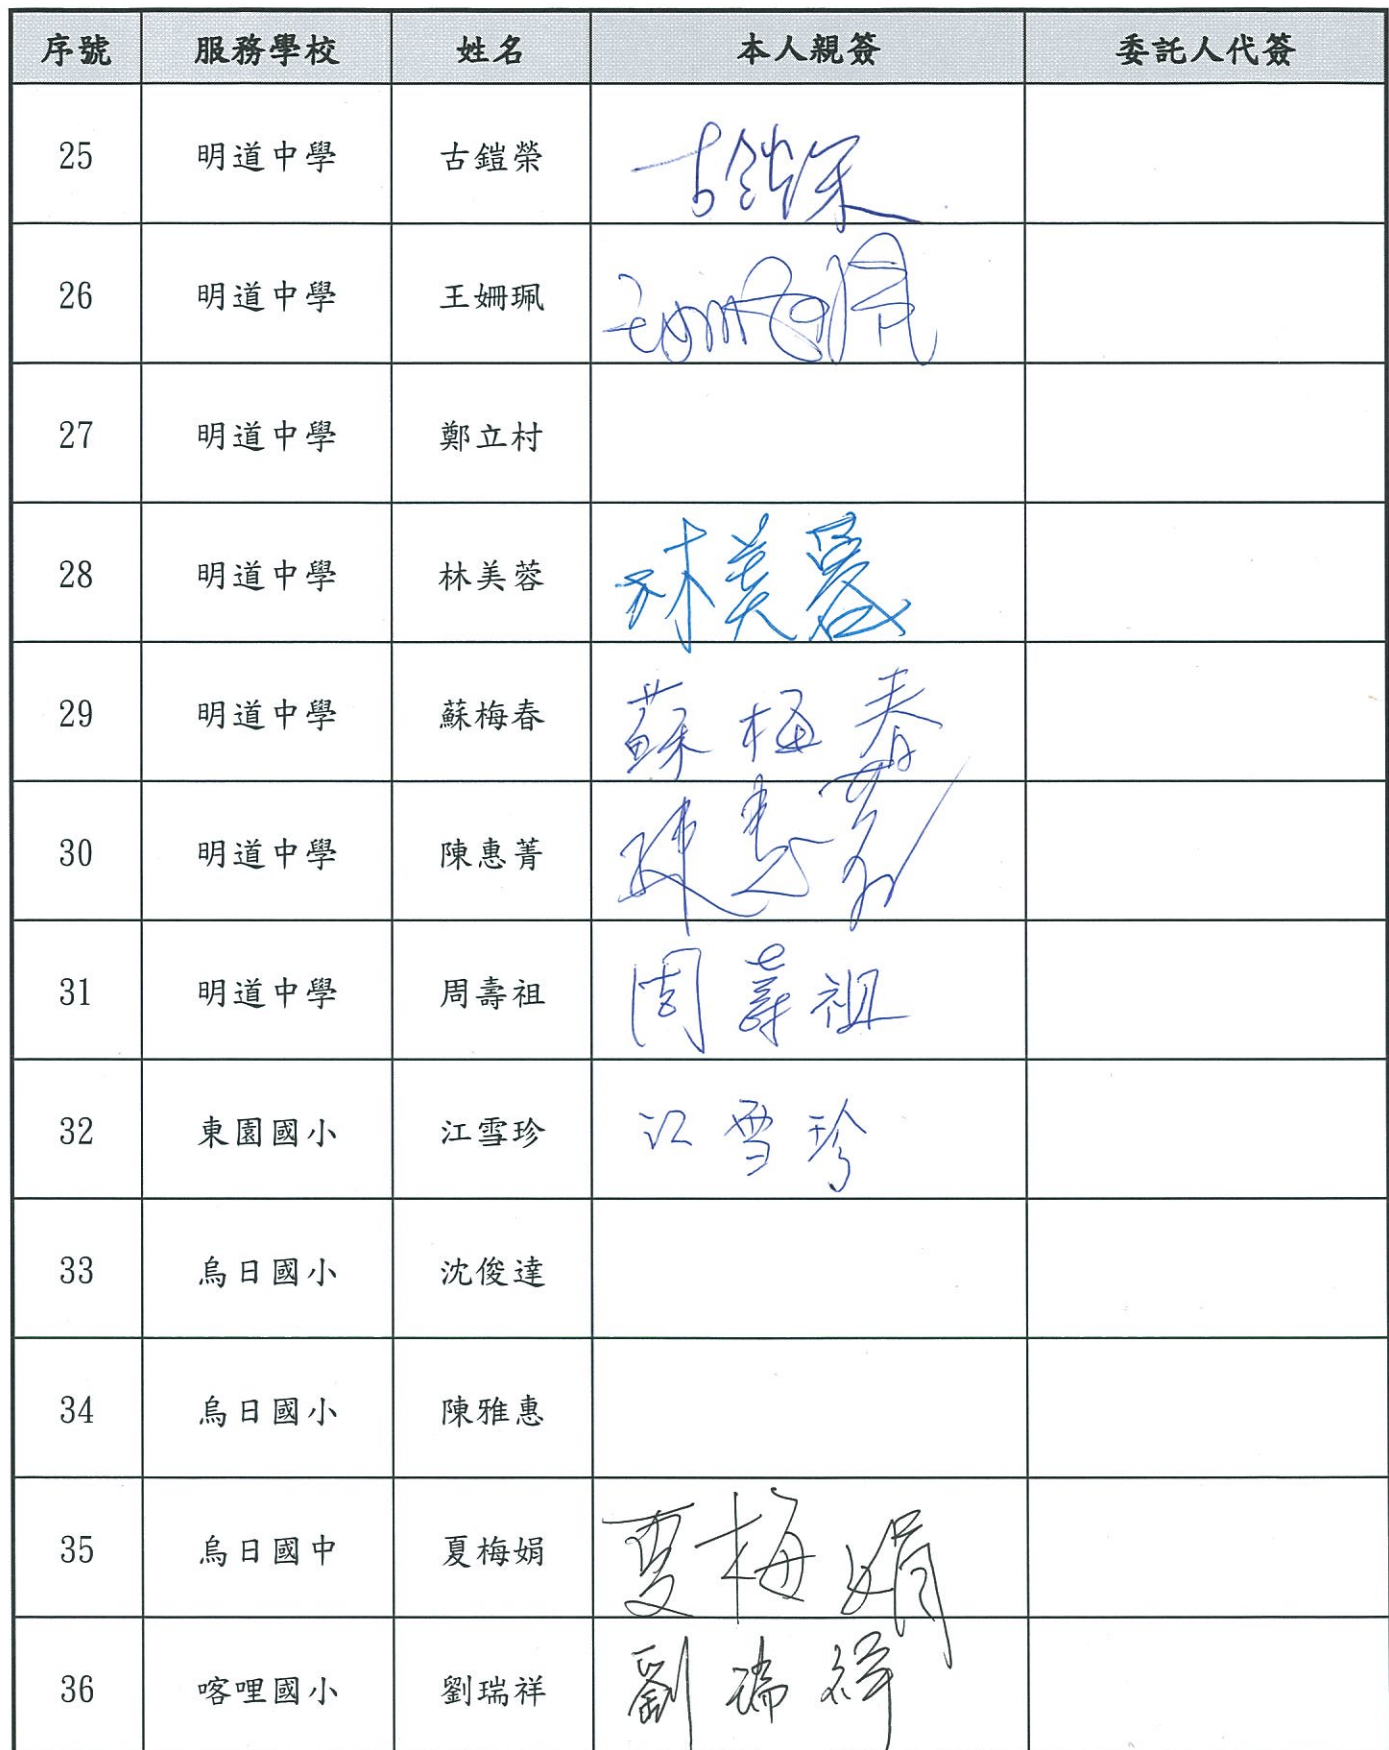 序號 服務學校 姓名 本人親簽 委託人代簽
25 明道中學 古鎧榮 古鎧榮
26 明道中學 王姗珮 王姗珮
27 明道中學 鄭立村
28 明道中學 林美蓉 林美蓉
29 明道中學 蘇梅春 蘇梅春
30 明道中學 陳惠菁 陳惠菁
31 明道中學 周壽祖 周壽祖
32 東園國小 江雪珍 江雪珍
33 烏日國小 沈俊達
34 烏日國小 陳雅惠
35 烏日國中 夏梅娟 夏梅娟
36 喀哩國小 劉瑞祥 劉瑞祥